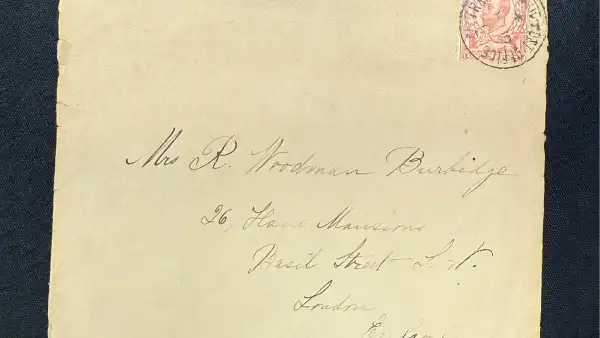 Mrs R. Woodman Burbidge
26, Hans Mansions
Basil Street S.W.
London